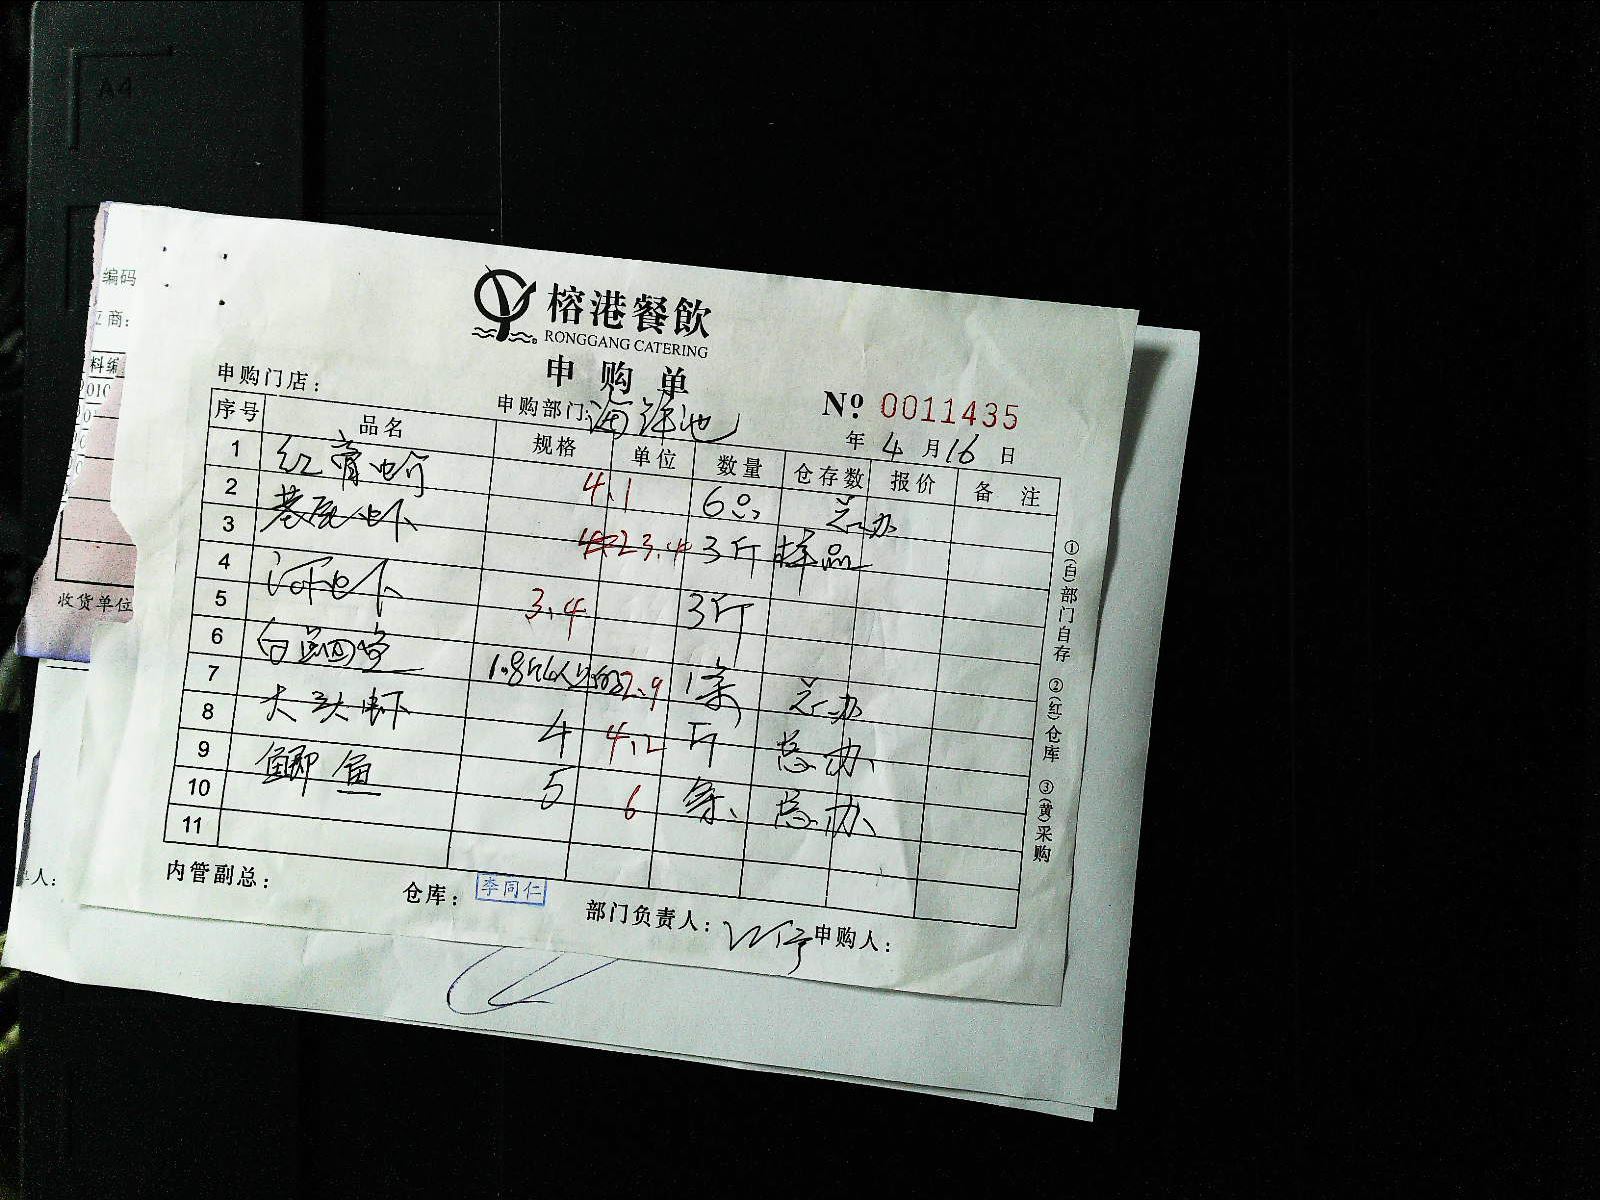 A4
编码
商:
料编
010
收货单位
人:
榕港餐飲
RONGGANG CATERING
申购单
申购门店:
申购部门: 海鲜池
№ 0011435
年 4 月 16 日
序号 品名 规格 单位 数量 仓存数 报价 备注
1 红膏蚧 4.1 6只 总办
2 基尾虾
3 3.4 3斤 样品
4 河虾
5 3.4 3斤
6 白
7 2.9 1条 总办
8 大头虾 4 4.2 斤 总办
9 鲫鱼 5 6 条 总办
10
11
内管副总:
仓库: 李同仁
部门负责人:
申购人:
①(白)部门自存 ②(红)仓库 ③(黄)采购